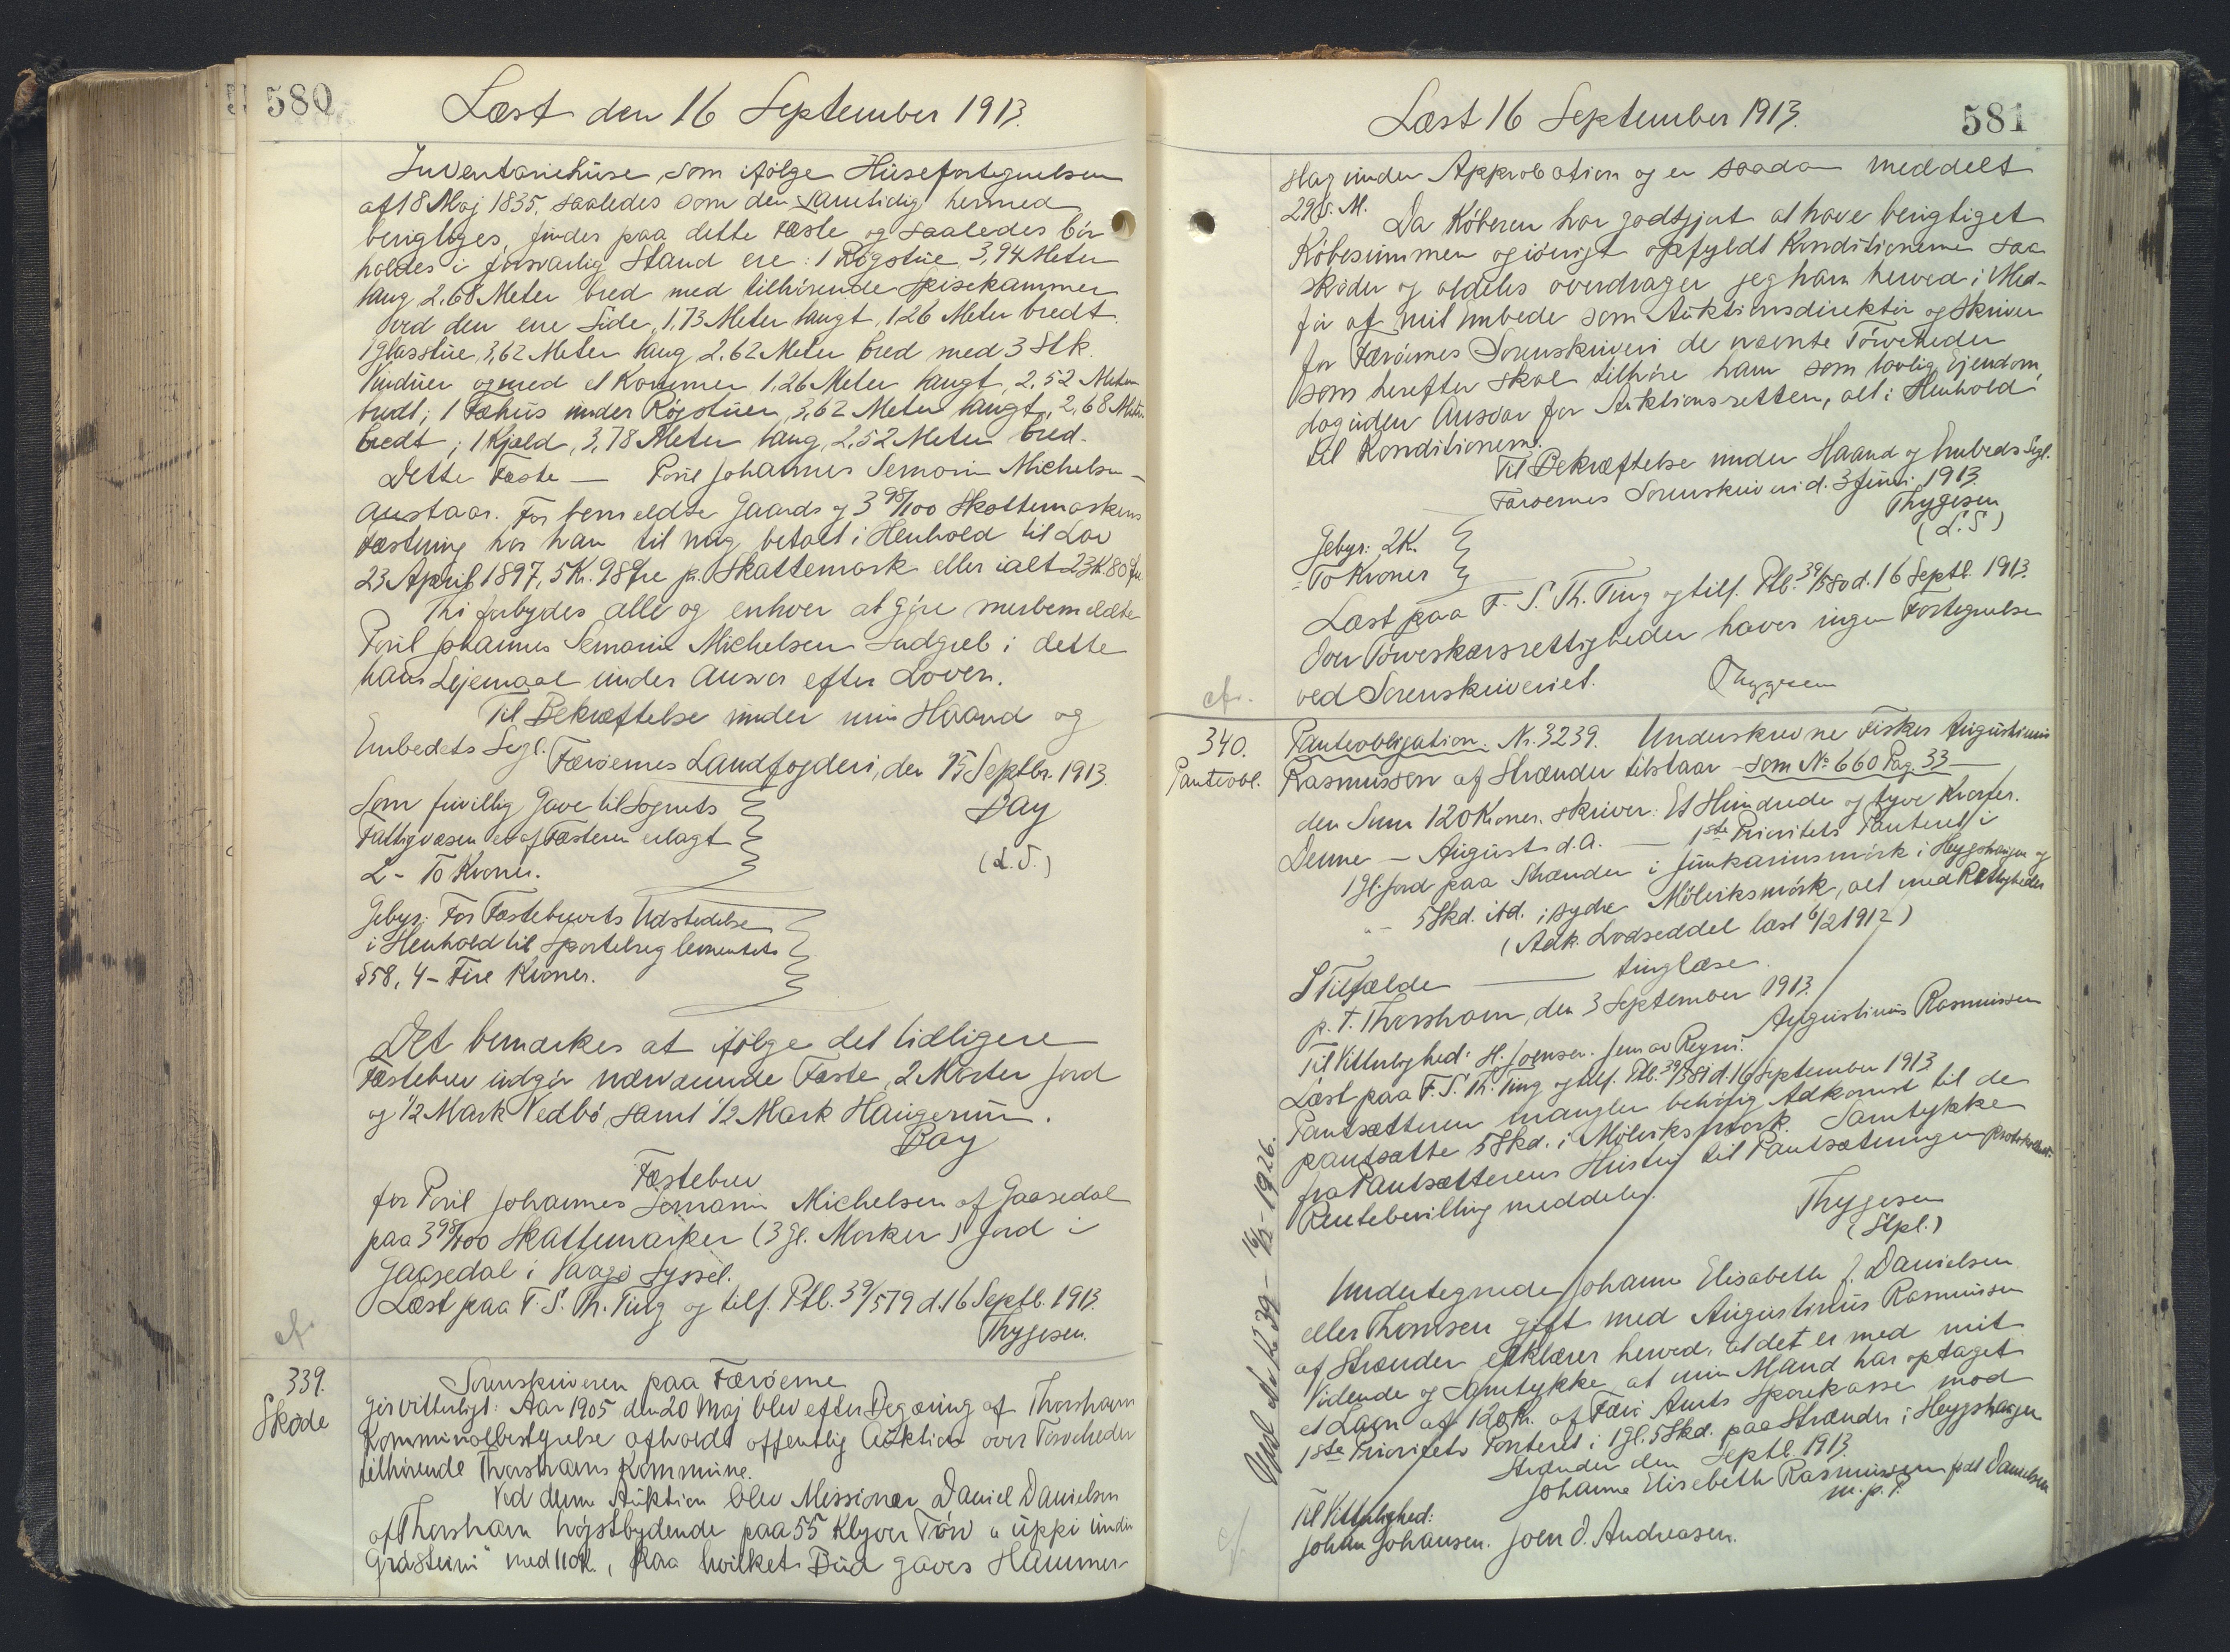 580
Læst den 16 September 1913.
Inventariehuse, som ifølge Husefortegnelsen
af 18 Maj 1835, saaledes som den samtidig hermed
berigtiges, findes paa dette Fæste og saaledes bør
holdes i forsvarlig Stand ere: 1 Røgstue 3,94 Meter
lang 2.68 Meter bred med tilhørende Spisekammer
ved den ene Side, 1.73 Meter langt, 1.26 Meter bredt.
1 Glasstue, 3,62 Meter lang, 2.62 Meter bred med 3 Stk.
Vinduer og med et Kammer 1,26 Meter langt, 2,52 Meter
bredt; 1 Fæhus under Røgstuen, 3,62 Meter langt, 2,68 Meter
bredt; 1 Kjeld, 3,78 Meter lang, 2,52 Meter bred.
Dette Fæste — Poul Johannes Semarin Michelsen —
anstaar. For bemeldte Gaards og 3 98/100 Skattemarkens
Fæstning har han til mig betalt i Henhold til Lov
23 April 1897, 5 Kr. 98 Øre pr. Skattemark eller ialt 23 K. 80 Øre.
Thi forbydes alle og enhver at gjøre merbemeldte
Poul Johannes Semarin Michelsen Indgreb i dette
hans Lejemaal under Ansvar efter Loven.
Til Bekræftelse under min Haand og
Embedets Segl. Færøernes Landfogderi, den 15 Septbr. 1913.
Som frivillig Gave til Sognets
Bay
Fattigvæsen er af Fæsteren erlagt
2 - To Kroner.
(L.S.)
Gebyr: For Fæstebrevets Udstedelse
i Henhold til Sportelreglementets
§ 58, 4 - Fire Kroner.
Det bemærkes at ifølge det tidligere
Fæstebrev udgør nærværende Fæste, 2 Marker Jord
og 1/2 Mark Vedbø, samt 1/2 Mark Haugerum.
Bay
Fæstebrev
for Poul Johannes Semarin Michelsen af Gaasedal
paa 3 98/100 Skattemarker (3 gl. Marker) Jord i
Gaasedal i Vaagø Syssel.
Læst paa F. S. Th. Ting og tilf. Ptl. 39/579 d. 16 Septb. 1913.
Thygesen.
cf.
339.
Skøde
Sorenskriveren paa Færøerne
Gør vitterligt: Aar 1905 den 20 Maj blev efter Begæring af Thorshavn
Kommunalbestyrelse afholdt offentlig Auktion over Tørveheder
tilhørende Thorshavns Kommune.
Ved denne Auktion blev Missionær Daniel Danielsen
af Thorshavn højstbydende paa 55 Klyver Tørv "uppi undir
Gråsteini" med 110 K., paa hvilket Bud gaves Hammer-
581
Læst 16 September 1913.
slag under Approbation og er saadan meddelt
29 s. M.
Da Køberen har godtgjort at have berigtiget
Købesummen og iøvrigt opfyldt Konditionerne saa
skøder og aldeles overdrager jeg ham herved i Med-
før af mit Embede som Auktionsdirektør og Skriver
for Færøernes Sorenskriveri de nævnte Tørveheder
som herefter skal tilhøre ham som lovlig Ejendom,
dog uden Ansvar for Auktionsretten, alt i Henhold
til Konditionerne.
Til Bekræftelse under Haand og Embeds Segl.
Færøernes Sorenskriveri d. 3 Juni 1913.
Thygesen
(L.S)
Gebyr: 2 K.
- To Kroner
Læst paa F. S. Th. Ting og tilf. Ptl. 39/580 d. 16 Septb. 1913.
Over Tørveskærsrettigheder haves ingen Fortegnelse
ved Sorenskriveriet.
Thygesen
cfr.
340.
Panteobl.
Panteobligation. Nr. 3239. Underskrevne Fisker Augustinus
Rasmussen af Strænder tilstaar - som No 660 Pag. 33 —
den Sum 120 Kroner. skriver: Et Hundrede og tyve Kroner.
Denne — August d.A. — 1ste Prioritets Panteret i
1 Gl. Jord paa Strænder i Junkarinsmørk i Heygshaugen og
" - 5 Skd. ibd. i sydre Mølviksmørk, alt med Rettigheder
(Adk. Lodseddel læst 6/2 1912)
I Tilfælde — tinglæse.
p. T. Thorshavn, den 3 September 1913.
Augustinus Rasmussen
Til Vitterlighed: H. Joensen. Jens av Reyni.
Læst paa F. S. Th. Ting og tilf. Ptl. 39/581 d. 16 September 1913
Pantsætteren mangler behørig Adkomst til de
pantsatte 5 Skd. i Mølviksmørk. Samtykke
fra Pantsætterens Hustru til Pantsætningen protokolleret.
Rentebevilling meddeles.
Thygesen
(Stpl.)
Undertegnede Johanne Elisabeth J. Danielsen
eller Thomsen gift med Augustinus Rasmussen
af Strænder erklærer herved, at det er med mit
Vidende og Samtykke at min Mand har optaget
et Laan af 120 K. af Færø Amts Sparekasse mod
1ste Prioritets Panteret i 1 gl. 5 Skd. paa Strænder i Heygshaugen
Strænder den Septb. 1913.
Johanne Elisebeth Rasmussen født Danielsen
m. p. P.
Til Vitterlighed:
Johan Johansen. Joen J. Andreasen.
cf.